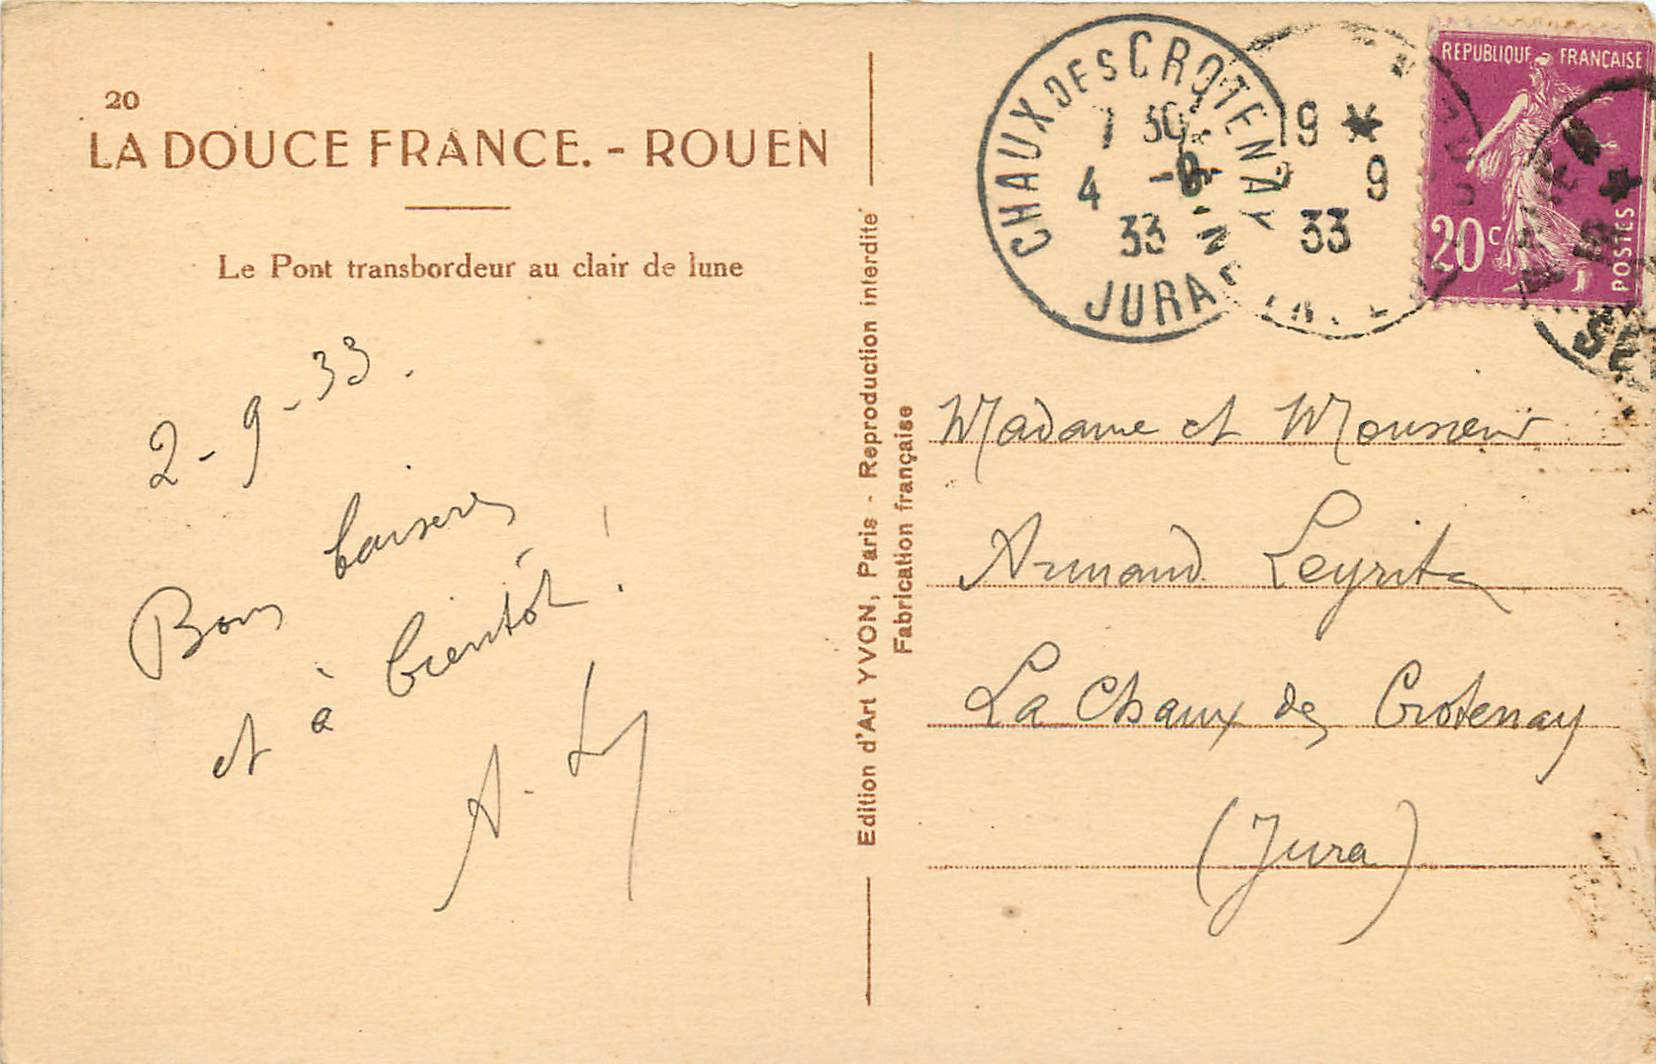 20
LA DOUCE FRANCE. - ROUEN
Le Pont transbordeur au clair de lune
2-9-33.
Bons baisers
et à bientôt !
A. L
Edition d'Art YVON, Paris - Reproduction interdite
Fabrication française
CHAUX DES CROTENAY
7 30
4 -9
33
JURA
19 *
9
33
REPUBLIQUE FRANÇAISE
20c
POSTES
Madame et Monsieur
Armand Leyritz
La Chaux des Crotenay
(Jura)